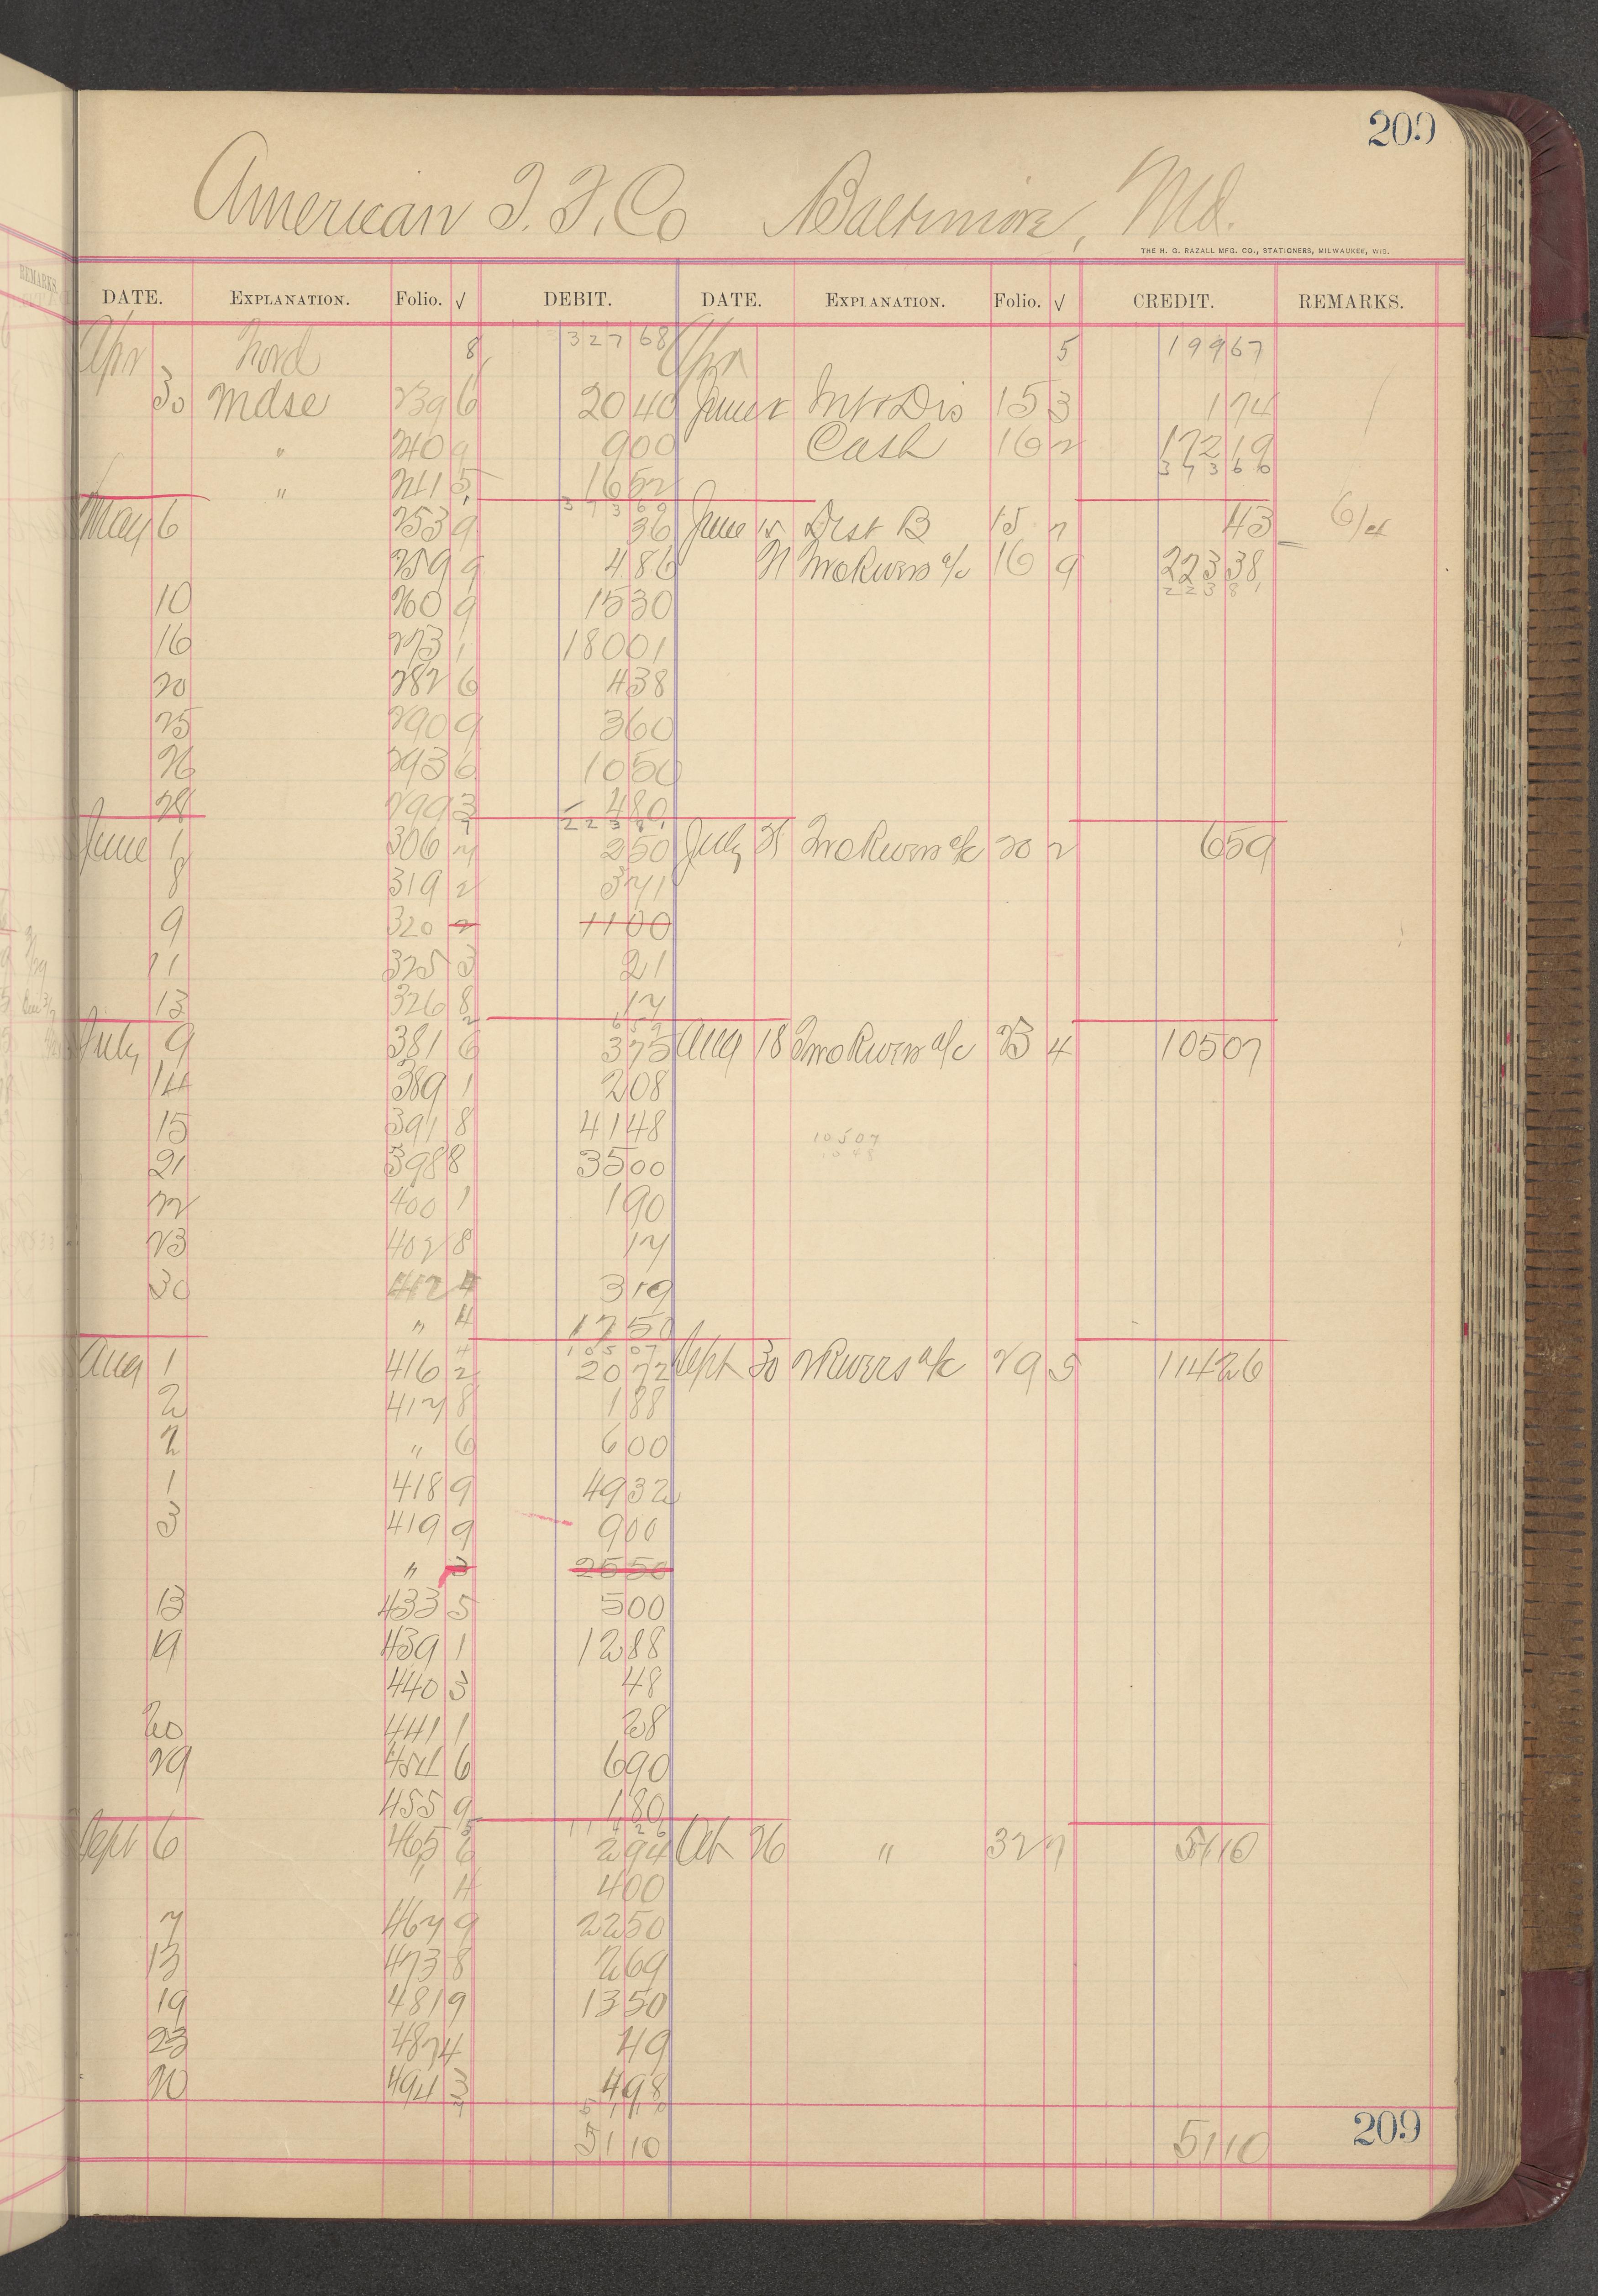 209
American T. T. Co Baltimore, Md.
THE H. G. RAZALL MFG. CO., STATIONERS, MILWAUKEE, WIS.
DATE. EXPLANATION. Folio. √ DEBIT. DATE. EXPLANATION. Folio. √ CREDIT. REMARKS.
Apr 8 327 68 Apr 5 199 67
30 Mdse 239 6 20 40 June Int & Dis 15 3 1 74
" 240 9 9 00 Cash 16 2 172 19
373 60
" 241 5 16 52
373 60
May 6 253 9 36 June 15 Dist B 15 7 43 6/4
259 9 4 86 16 9 223 38
223 81
10 260 9 15 30
16 273 1 180 01
20 282 6 4 38
25 290 9 3 60
26 293 6 10 50
28 299 3 4 80
223 81
June 1 306 7 2 50 July 20 2 6 59
8 319 2 3 71
9 320 2 11 00
11 325 3 21
13 326 8 17
6 59
July 9 381 6 3 75 Aug 18 23 4 105 07
14 389 1 2 08
15 391 8 41 48
105 07
21 398 8 35 00
22 400 1 1 90
23 402 8 17
30 412 4 3 19
" 4 17 50
105 07
Aug 1 416 2 20 72 Sept 30 29 5 114 26
2 417 8 1 88
2 " 6 6 00
1 418 9 49 32
3 419 9 9 00
" 3 25 50
13 433 5 5 00
19 439 1 12 88
440 3 48
20 441 1 28
29 454 6 6 90
455 9 1 80
114 26
Sept 6 465 6 2 94 Oct 26 " 32 7 51 10
" 4 4 00
7 467 9 22 50
13 473 8 2 69
19 481 9 13 50
23 487 4 49
494 3 4 98
51 10
51 10 51 10
209